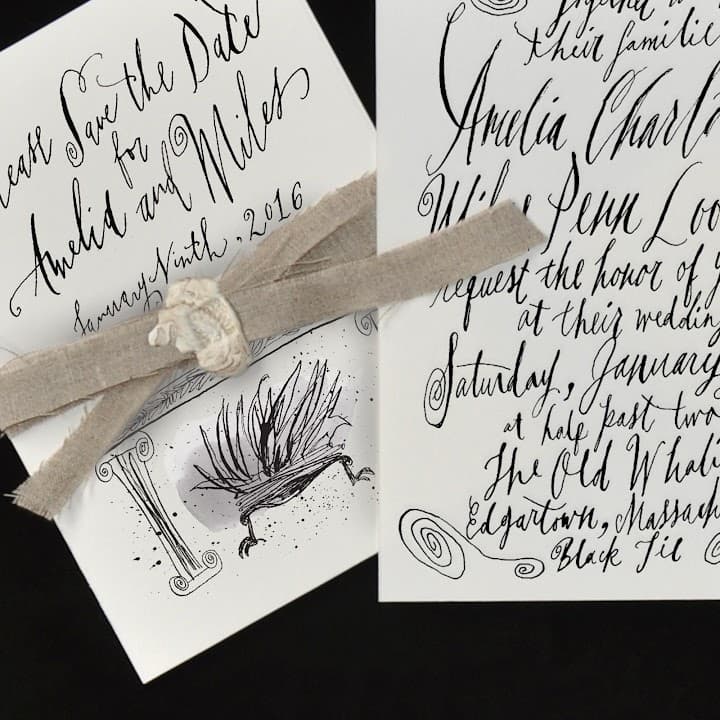 lease Save the Date
for
Amelia and Miles
January Ninth, 2016
together
their familie
Amelia Charl
Penn Loo
request the honor of
at their wedding
Saturday, January
at half past two
The Old Whali
Edgartown, Massach
Black Tie